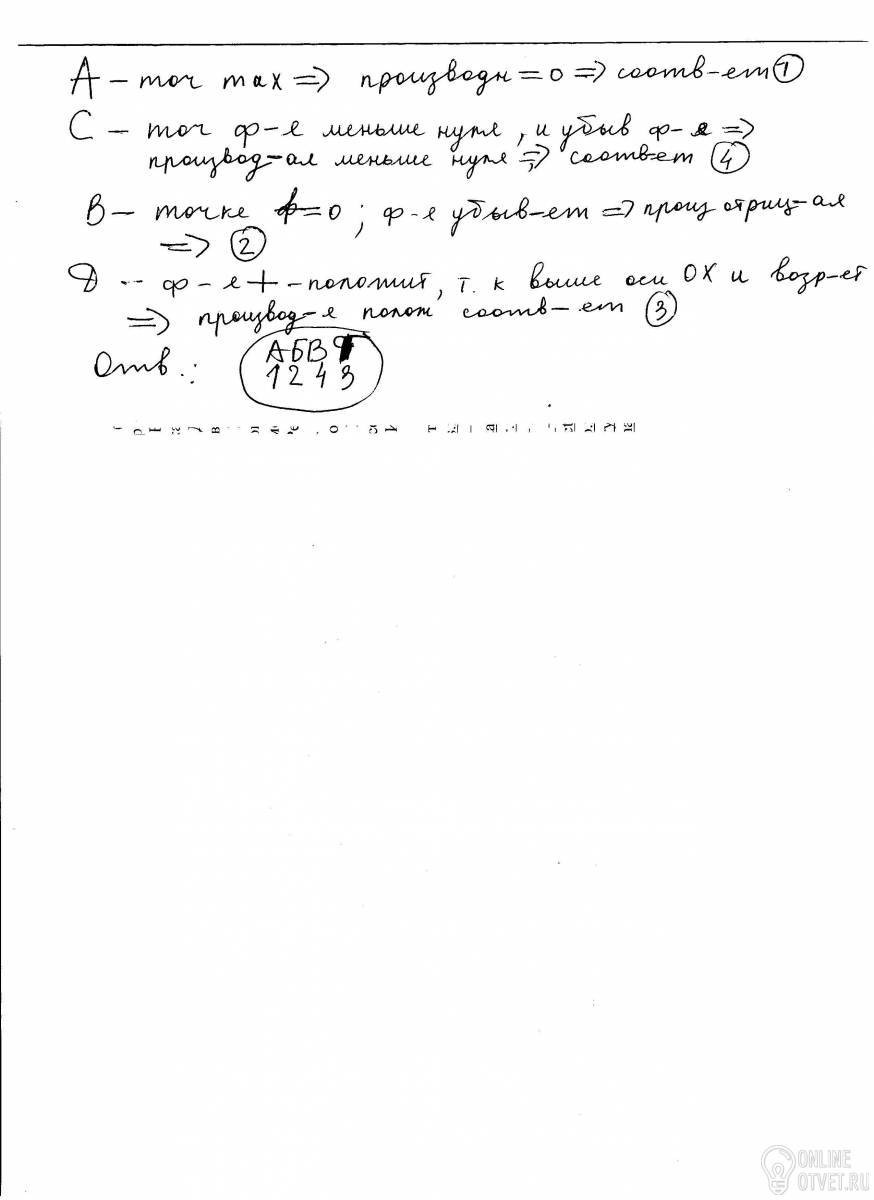 А – точ max => производн = 0 => соотв-ет 1
С – точ ф-я меньше нуля, и убыв ф-я =>
производ-ая меньше нуля => соотв-ет 4
В – точке =0; ф-я убыв-ет => произ отриц-ая
=> 2
Д -- ф-я + - положит, т. к выше оси ОХ и возр-ет
=> производ-я полож соотв-ет 3
Отв.:
АБВ
1 2 4 3
ONLINE
OTVET.RU